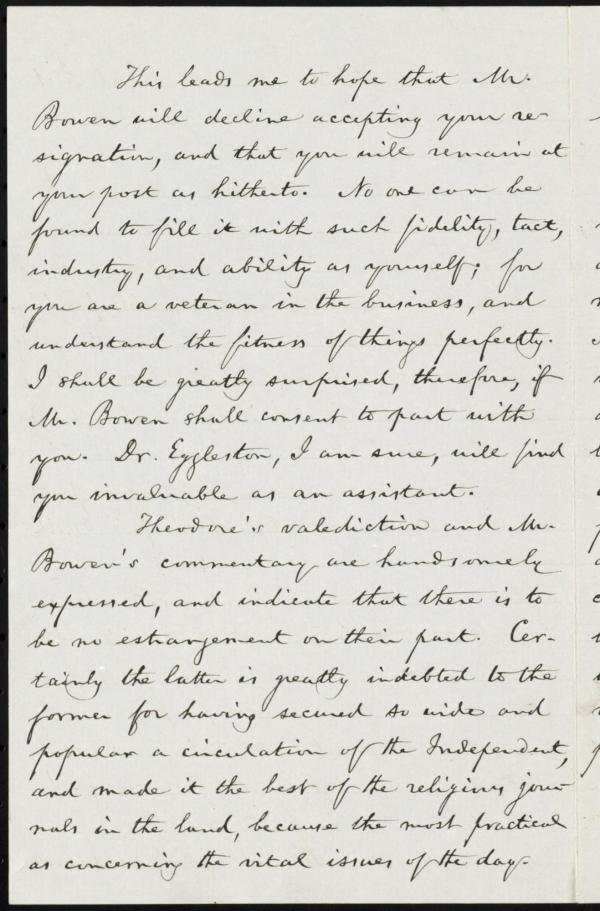 This leads me to hope that Mr.
Bowen will decline accepting your re-
signation, and that you will remain at
your post as hitherto. No one can be
found to fill it with such fidelity, tact,
industry, and ability as yourself; for
you are a veteran in the business, and
understand the fitness of things perfectly.
I shall be greatly surprised, therefore, if
Mr. Bowen shall consent to part with
you. Dr. Eggleston, I am sure, will find
you invaluable as an assistant.
Theodore's valediction and Mr.
Bowen's commentary are handsomely
expressed, and indicate that there is to
be no estrangement on their part. Cer-
tainly the latter is greatly indebted to the
former for having secured so wide and
popular a circulation of the Independent,
and made it the best of the religious jour-
nals in the land, because the most practical
as concerning the vital issues of the day.